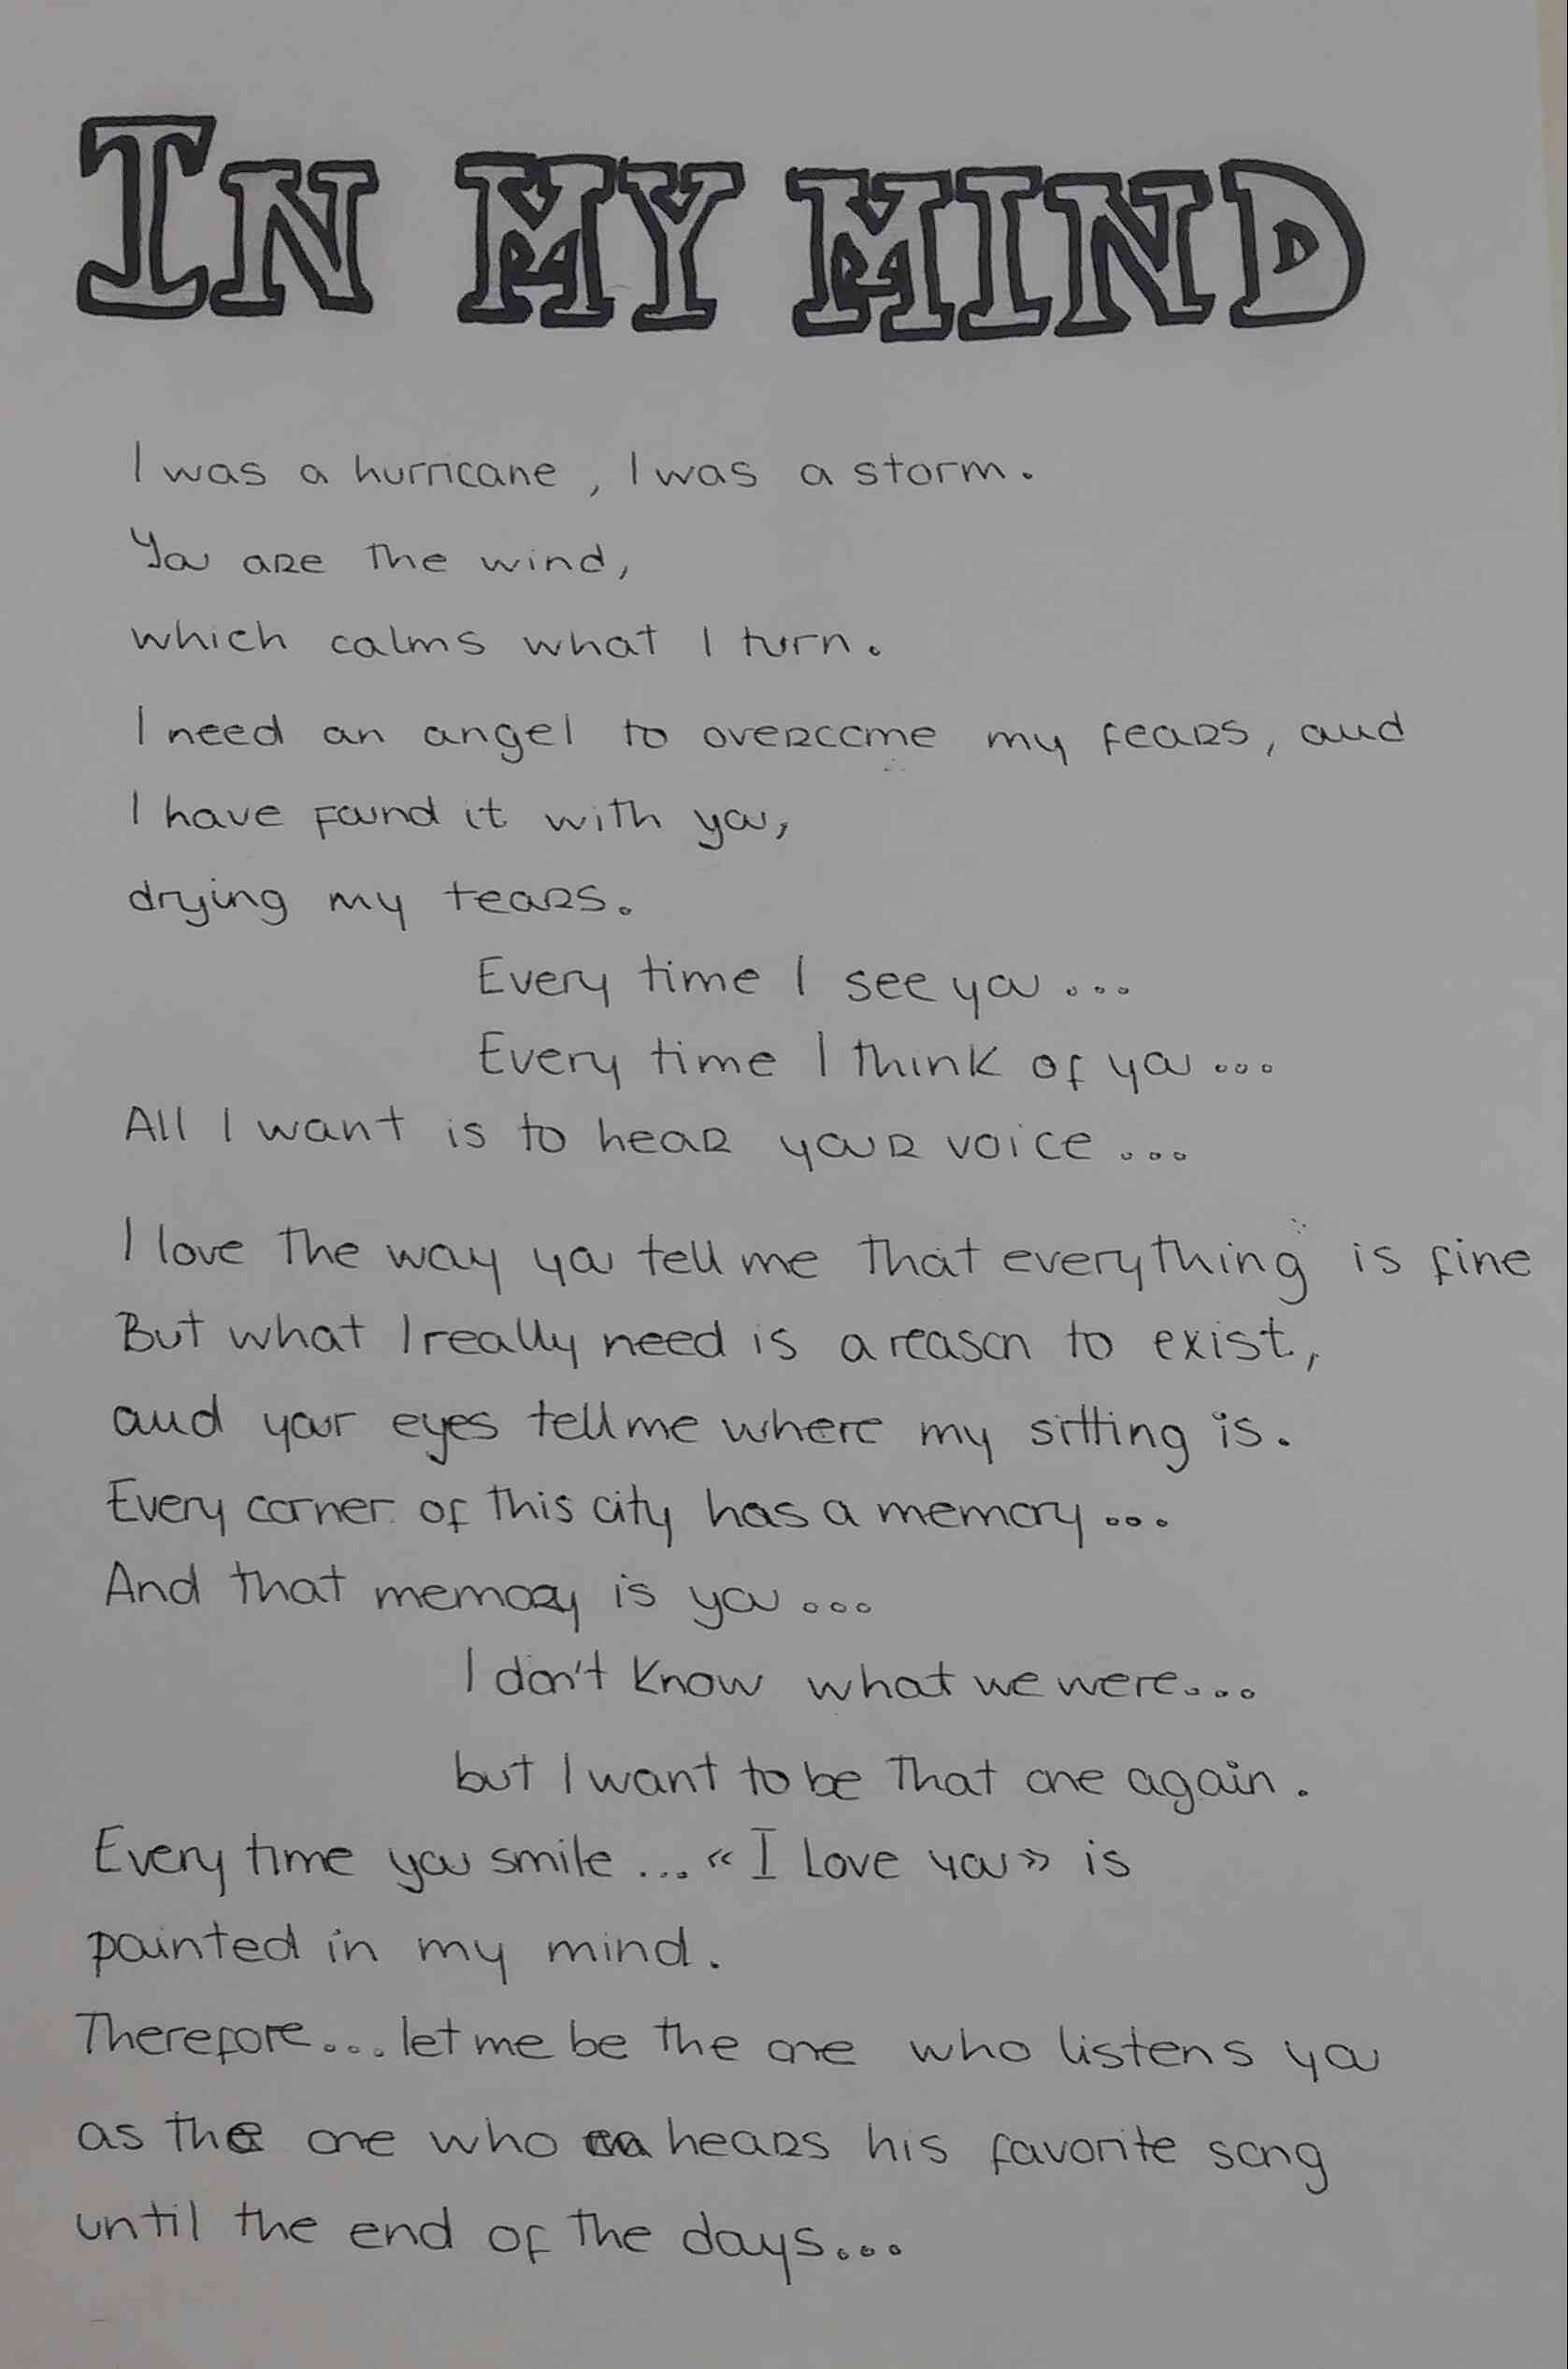 IN MY MIND
I was a hurricane, I was a storm.
You are the wind,
which calms what I turn.
I need an angel to overcome my fears, and
I have found it with you,
drying my tears.
Every time I see you...
Every time I think of you...
All I want is to hear your voice...
I love the way you tell me that everything is fine
But what I really need is a reason to exist,
and your eyes tell me where my sitting is.
Every corner of this city has a memory...
And that memory is you...
I don't know what we were...
but I want to be that one again.
Every time you smile... «I Love you» is
painted in my mind.
Therefore... let me be the one who listens you
as the one who hears his favorite song
until the end of the days...